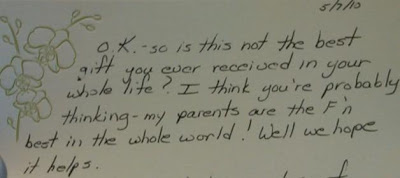 5/7/10
O.K.-so is this not the best
gift you ever received in your
whole life? I think you're probably
thinking-my parents are the F'n
best in the whole world! Well we hope
it helps.